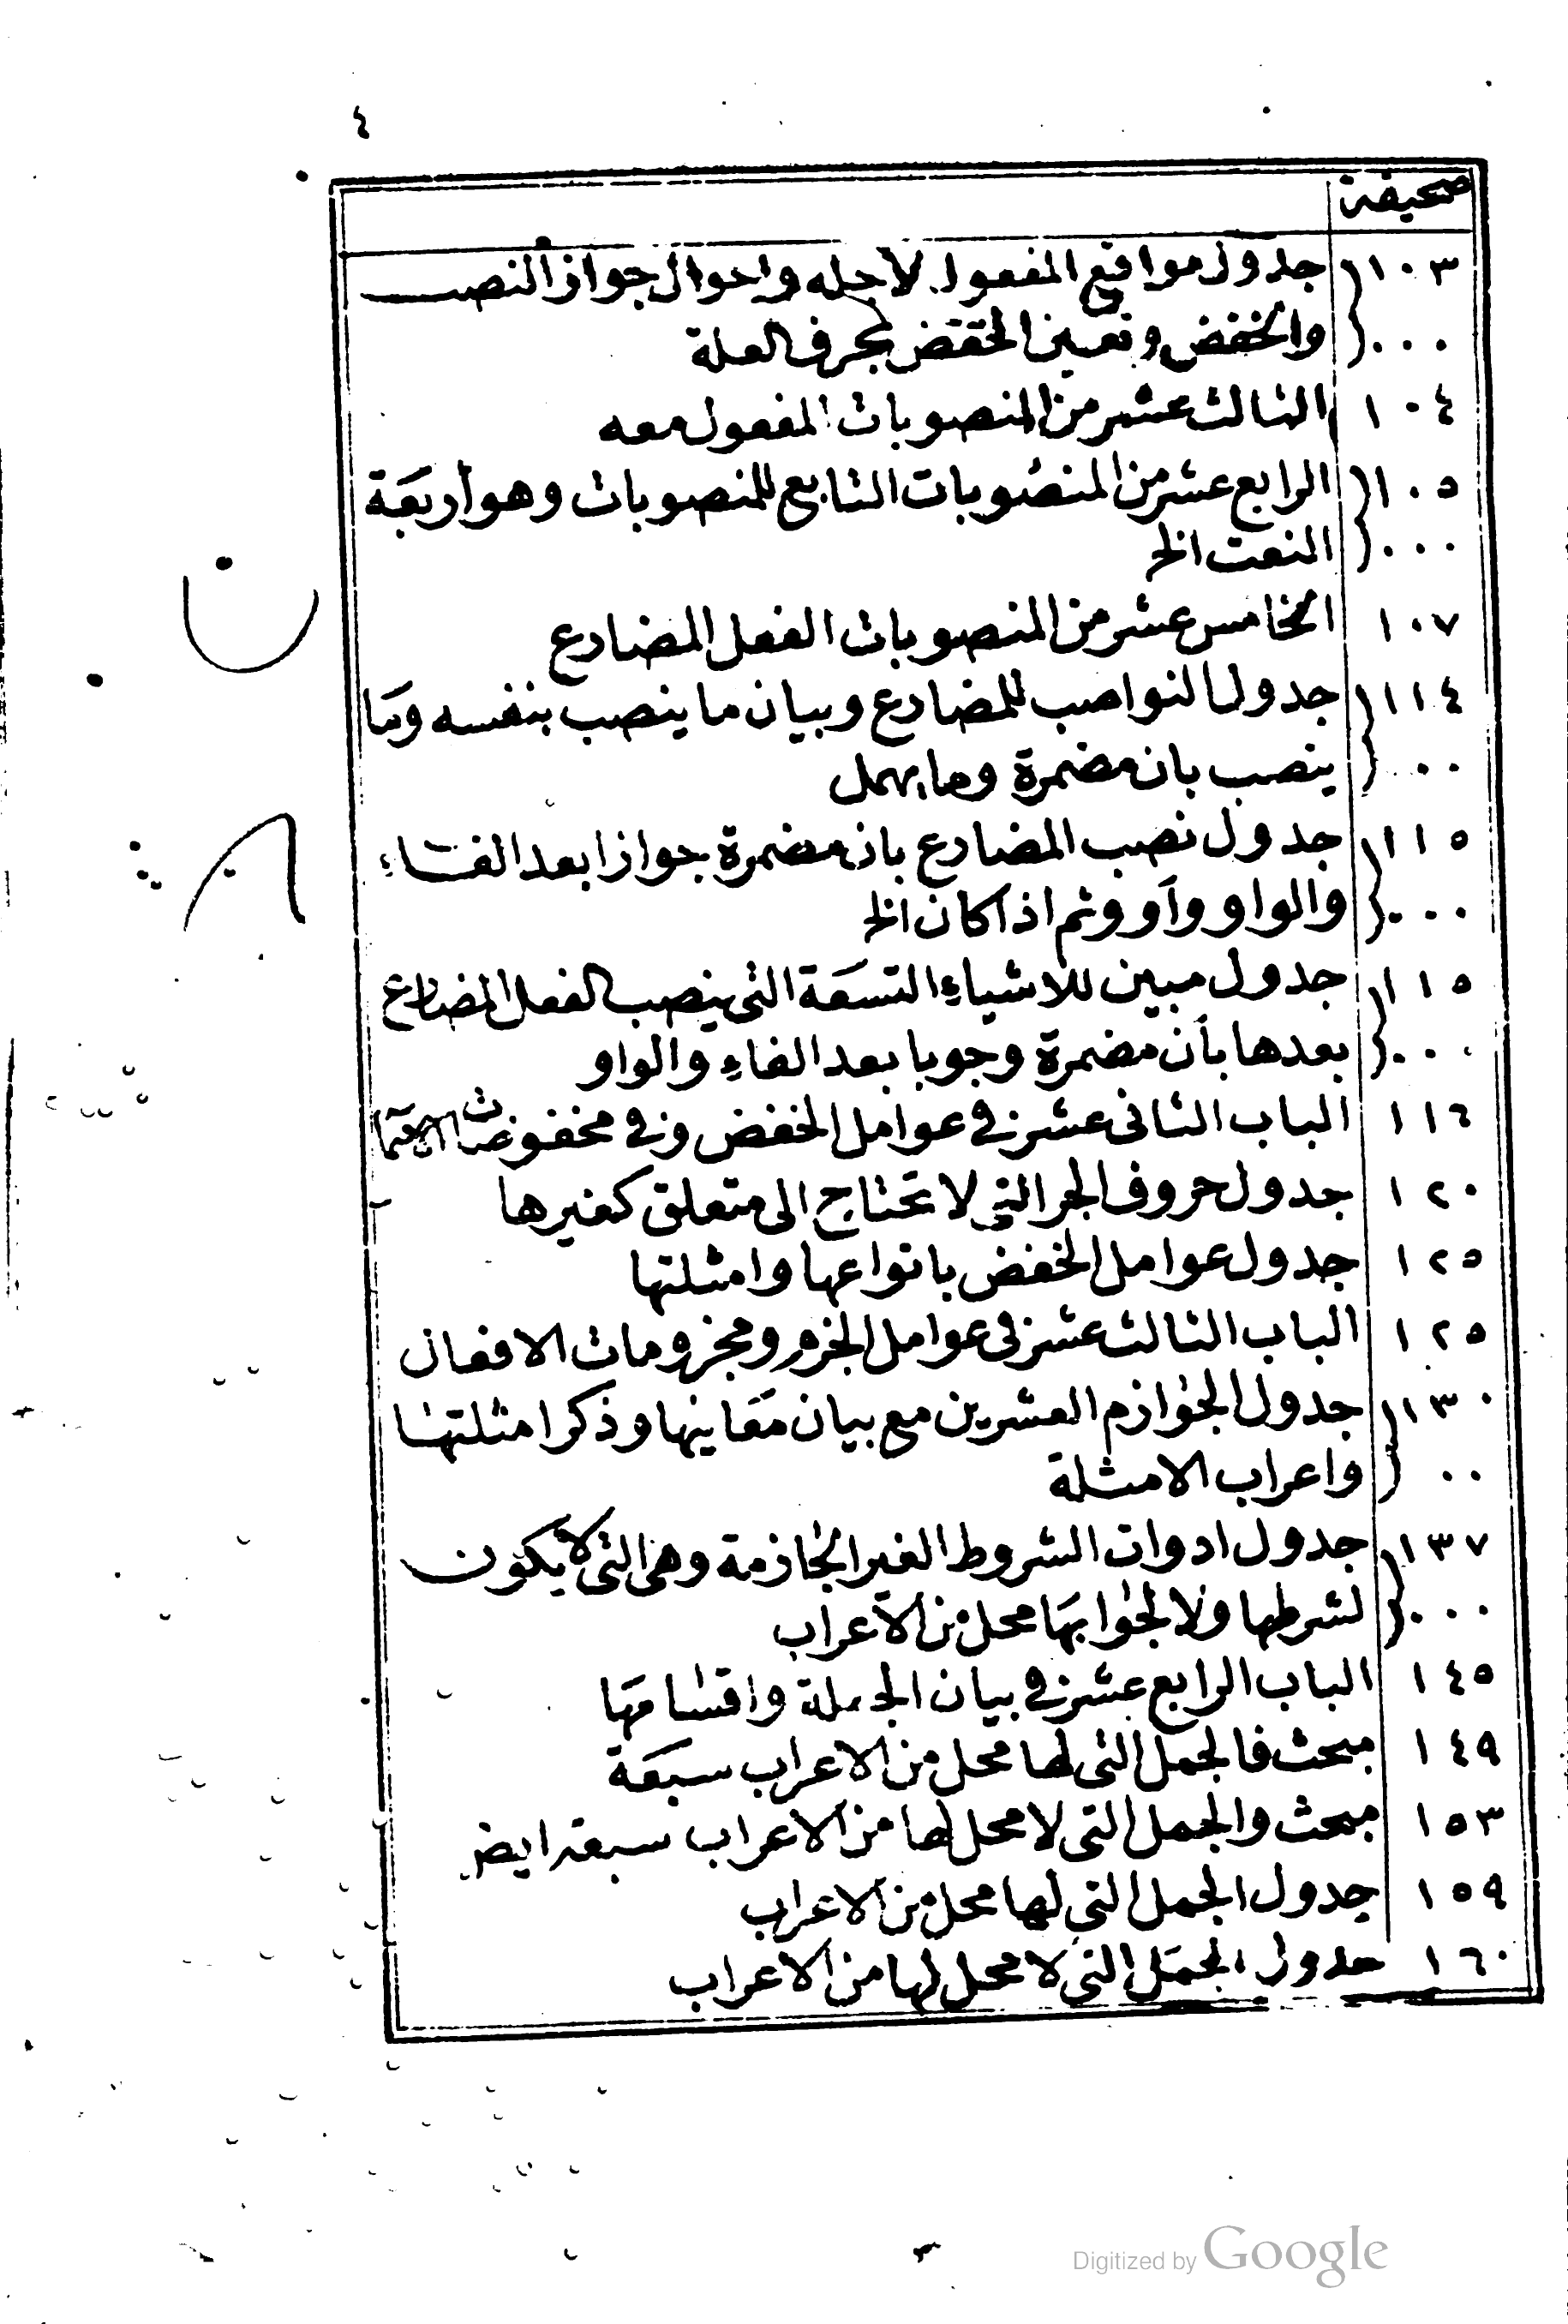 ٤
صحيفة
١٠٣ جدول مواقع المفعول لاجله واحوال جواز النصب
٠٠٠ والخفض وتعين الخفض بحرف العلة
١٠٤ الثالث عشر من المنصوبات المفعول معه
١٠٥ الرابع عشر من المنصوبات التابع للمنصوبات وهو أربعة
٠٠٠ النعت الخ
١٠٧ الخامس عشر من المنصوبات الفعل المضارع
١١٤ جدول النواصب للمضارع وبيان ما ينصب بنفسه وما
٠٠ ينصب بان مضمرة وما يهمل
١١٥ جدول نصب المضارع بان مضمرة جوازا بعد الفاء
٠٠٠ والواو وأو وثم اذا كان الخ
١١٥ جدول مبين للاشياء التسعة التى ينصب الفعل المضارع
٠٠٠ بعدها بأن مضمرة وجوبا بعد الفاء والواو
١١٦ الباب الثانى عشر فى عوامل الخفض وفى مخفوضات الاسماء
١٢٠ جدول حروف الجر التى لا تحتاج الى متعلق كغيرها
١٢٥ جدول عوامل الخفض بانواعها وامثلتها
١٢٥ الباب الثالث عشر فى عوامل الجزم ومجزومات الافعال
١٣٠ جدول الجوازم العشرين مع بيان معانيها وذكر امثلتها
٠٠ واعراب الامثلة
١٣٧ جدول ادوات الشروط الغير الجازمة وهى التى لا يكون
٠٠٠ لشرطها ولا لجوابها محل من الاعراب
١٤٥ الباب الرابع عشر فى بيان الجملة واقسامها
١٤٩ مبحث فالجمل التى لها محل من الاعراب سبعة
١٥٣ مبحث والجمل التى لا محل لها من الاعراب سبعة ايض
١٥٩ جدول الجمل التى لها محل من الاعراب
١٦٠ جدول الجمل التى لا محل لها من الاعراب
Digitized by Google